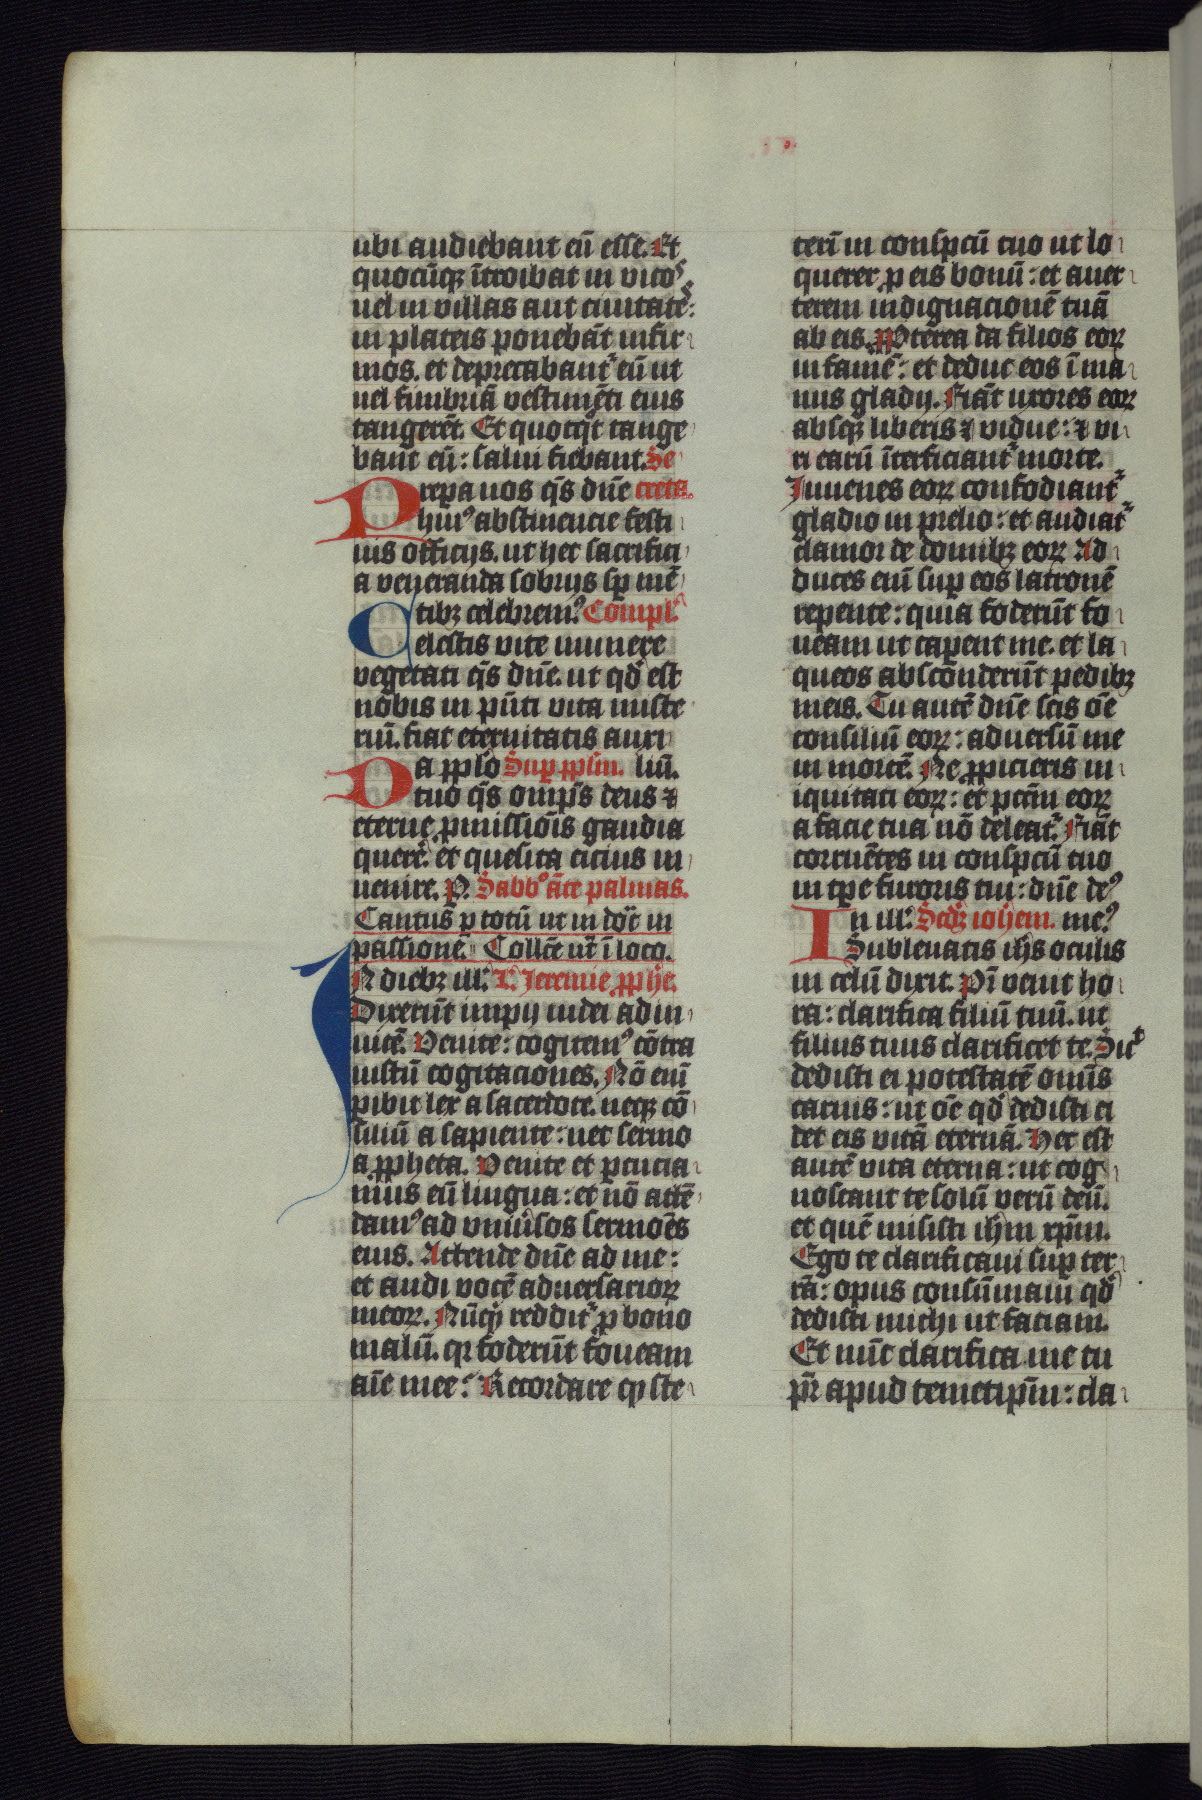 ubi audiebant eū esse. Et
quocūqꝫ ītroibat in vicoꝰ
uel in villas aut ciuitateꝰ:
in plateis ponebāt infir
mos. et deprecabantᷣ eū ut
uel fimbriā vestimēti eius
tangerēt. Et quotqͦt tange
bant eū: salui fiebant. Se
Prepa nos qͥs dn̄e creta.
huiꝰ abstinencie festi
uis officijs. ut hec sacrifici
a veneranda sobrijs sp̲ mē
tibꝫ celebremꝰ. Compl.ͣ
Celestis vite munere
vegetati qͥs dn̄e. ut qd̓ est
nobis in pn̄ti vita miste
riū. fiat eternitatis auxi
Da pp̄lo Sup pp̄lm. liū.
tuo qͥs omp̄s deus ⁊
eterne ꝓmissiōis gaudia
querē. et quesita cicius in
uenire. P. Sabbͦ āte palmas.
Cantus p totū ut in doīc in
passione. Collc̄e ut̓ ī loco.
In diebꝫ ill̓. L. Jeremie pp̄he.
Dixerūt impij iudei ad in
uicē. Venite: cogitemꝰ cōtra
iustū cogitaciones. Nō enī
pibit lex a sacerdote. neqꝫ cō
siliū a sapiente: nec sermo
a ppheta. Venite et pcucia
mus eū lingua: et nō attē
damꝰ ad vniuͥsos sermōes
eius. Attende dn̄e ad me:
et audi vocē aduersarioꝝ
meoꝝ. Nūqͥd redditᷣ p bono
malū. qꝛ foderūt foueam
aīe mee. Recordare qͥ ste
terī in conspcū tuo ut lo
querer p eis bonū: et auer
terem indignacionē tuā
ab eis. Ppterea da filios eoꝝ
in famē: et deduc eos ī ma
nus gladij. Fiāt uxores eoꝝ
absqꝫ liberis ⁊ vidue: ⁊ vi
ri earū īterficiantᷣ morte.
Juuenes eoꝝ confodiantᷣ
gladio in prelio: et audiatᷣ
clamor de domibꝫ eoꝝ. Ad
duces enī sup eos latronē
repente: quia foderūt fo
ueam ut caperent me. et la
queos absconderūt pedibꝫ
meis. Tu autē dn̄e scis oē
consiliū eoꝝ: aduersū me
in mortē. Ne ppicieris in
iquitati eoꝝ: et pctm̄ eoꝝ
a facie tua nō deleatᷣ. Fiāt
corruētes in conspcū tuo
in tpe furoris tui: dn̄e deꝰ
In ill̓. Scdꝫ ioh̄em. meꝰ
Subleuatis ih̄s oculis
in celū dixit. Pr̄ venit ho
ra: clarifica filiū tuū. ut
filius tuus clarificet te. Sicͭ
dedisti ei potestatē omīs
carnis: ut oē qd̓ dedisti ei
det eis vitā eternā. Hec est
autē vita eterna: ut cog
noscant te solū verū deū.
et quē misisti ih̄m xp̄m.
Ego te clarificaui sup ter
rā: opus consūmaui qd̓
dedisti michi ut faciam.
Et nūc clarifica me tu
pr̄ apud temetip̄m: cla